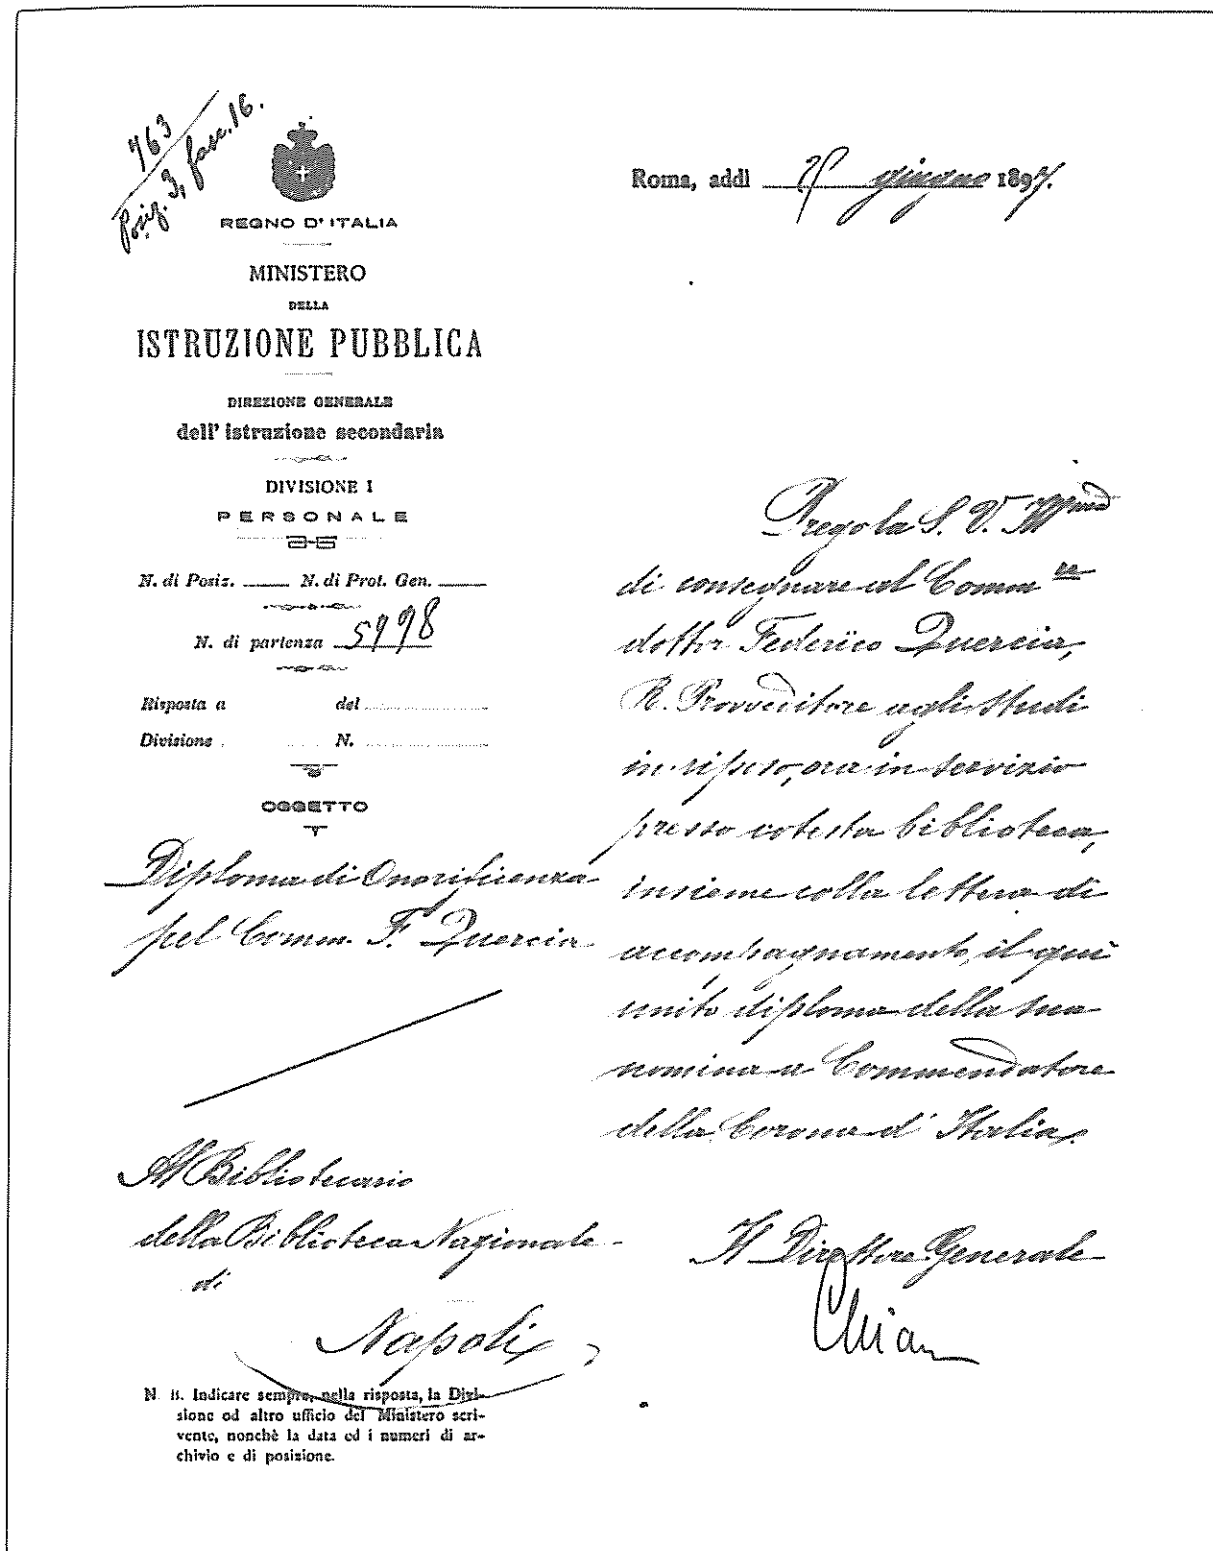 763
Posiz. 3, fasc. 16.
REGNO D'ITALIA
MINISTERO
DELLA
ISTRUZIONE PUBBLICA
DIREZIONE GENERALE
dell'istruzione secondaria
DIVISIONE I
PERSONALE
N. di Posiz. N. di Prot. Gen.
N. di partenza 5998
Risposta a del
Divisione N.
OGGETTO
Diploma di Onorificenza
pel Comm. F. Quercia
Al Bibliotecario
della Biblioteca Nazionale
di
Napoli
N. B. Indicare sempre, nella risposta, la Divi-
sione od altro ufficio del Ministero scri-
vente, nonchè la data ed i numeri di ar-
chivio e di posizione.
Roma, addì giugno 1897.
Prego la S. V. Ill^ma
di consegnare al Comm^re
dottor Federico Quercia,
R. Provveditore agli studi
in riposo, ora in servizio
presso cotesta biblioteca,
insieme colla lettera di
accompagnamento, il qui
unito diploma della sua
nomina a Commendatore
della Corona d'Italia.
Il Direttore Generale